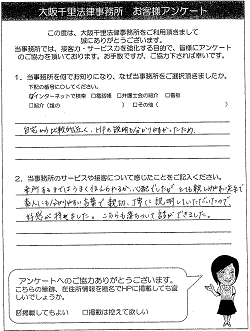 大阪千里法律事務所　お客様アンケート
この度は、大阪千里法律事務所をご利用頂きまして
誠にありがとうございます。
当事務所では、接客力・サービス力を強化する目的で、皆様にアンケート
のご協力を頂いております。お手数ですが、ご協力下されば幸いです。
1．当事務所を何でお知りになり、なぜ当事務所をご選択頂きましたか。
下記の番号に○してください。
インターネットで検索　□電話帳　□弁護士会の紹介　□看板
□紹介（誰の　　　）　□その他（　　　）
自宅から比較的近く、HPの説明も分かりやすかったため。
2．当事務所のサービスや接客について感じたことをご記入ください。
来所するまではうまく話せるか心配でしたが とても親しみやすい先生で
素人にも分かりやすい言葉で 親切、丁寧に説明していただいたので
好感が持てました。こちらも落ちついて話ができました。
アンケートへのご協力ありがとうございます。
こちらの筆跡、住所情報を匿名でHPに掲載しても宜
しいでしょうか。
掲載してもよい　□掲載は控えて欲しい